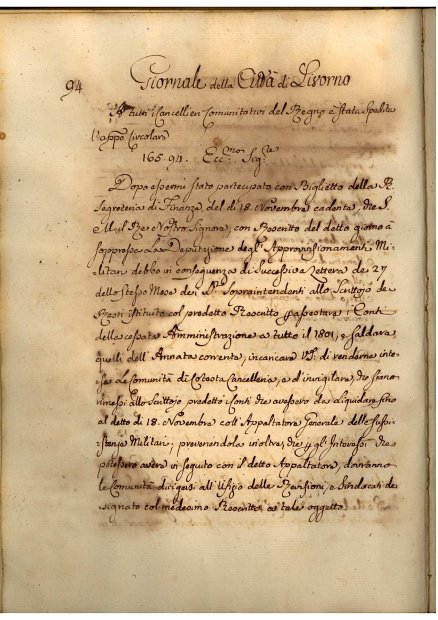 94 Giornale della Città di Livorno
A tutti i Cancellieri Comunitativi del Regno è stata spedita
l'appa Circolare
165. 94. Eccmo Sigre
Dopo essermi stato partecipato con Biglietto della R.
Segreteria di Finanze del dì 18. Novembre cadente, che S.
M. il Re Nostro Signore, con Rescritto del detto giorno à
soppresse La Deputazione degl' Approvvisionamenti Mi-
litari debbo in conseguenza di successiva Lettera de' 27
dello stesso Mese dei SSri Sopraintendenti allo Scrittojo de
Resti Istituito col predetto Rescritto p assestare i Conti
della cessata Amministrazione a tutto il 1801, e saldare
quelli dell' Annata corrente, incaricare VS. di renderne inte-
se le Comunità di Cotesta Cancelleria, e d'invigilare, che siano
rimessi allo Scrittojo predetto i Conti che avessero da liquidare fino
al detto dì 18. Novembre coll' Appaltatore Generale delle sussi-
stenze Militari; prevenendola inoltre, che p gl' Interessi che
potessero avere in seguito con il detto Appaltatore, dovranno
le Comunità dirigersi all' Ufizio delle Revisioni, e Sindacati de-
signato col medesimo Rescritto a tale oggetto.